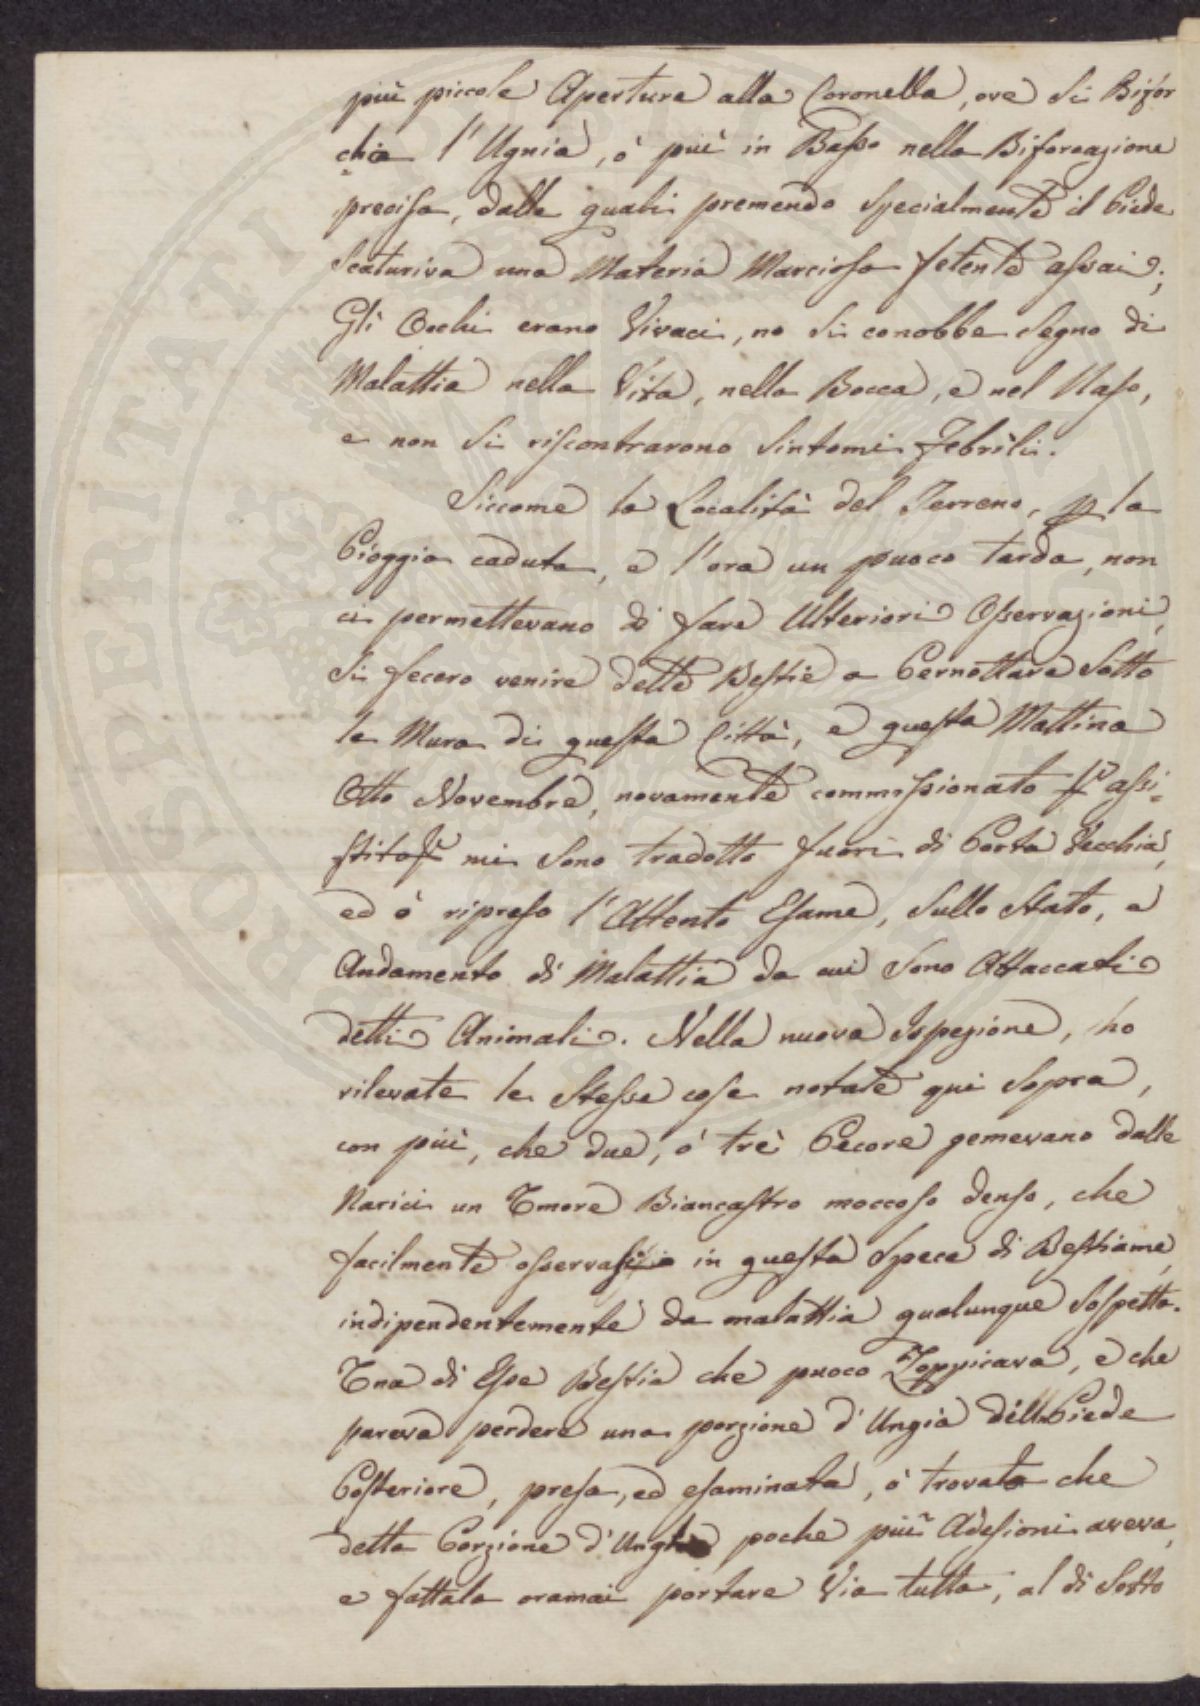 più piccole Aperture alla Coronella, ove si Bifor
chia l'Ugnia, ò più in Basso nella Biforcazione
precisa, dalle quali premendo specialmente il Piede
scaturiva una Materia Marciosa fetente assai;
Gli Occhi erano Vivaci, no si conobbe segno di
Malattia nella Vita, nella Bocca, e nel Naso,
e non si riscontrarono sintomi Febrili.
Siccome la Località del Terreno, p la
Pioggia caduta, e l'ora un puoco tarda, non
ci permettevano di fare Ulteriori Osservazioni,
si fecero venire dette Bestie a Pernottare sotto
le Mura di questa Città, e questa Mattina
Otto Novembre, novamente commissionato assi-
stito mi sono tradotto fuori di Porta Vecchia,
ed ò ripreso l'Attento Esame, sullo stato, e
Andamento di Malattia da cui sono Attaccati
detti Animali. Nella nuova Ispezione, ho
rilevate le stesse cose notate qui sopra,
con più, che due, ò trè Pecore gemevano dalle
Narici un Umore Biancastro moccoso denso, che
facilmente osservasi in questa spece di Bestiame,
indipendentemente da malattia qualunque sospetta.
Una di Esse Bestia che puoco Zoppicava, e che
pareva perdere una porzione d'Ungia dell Piede
Posteriore, presa, ed esaminata, ò trovato che
detta Porzione d'Unghia poche più Adesioni aveva,
e fattala oramai portare Via tutta, al di sotto
PROSPERITATI